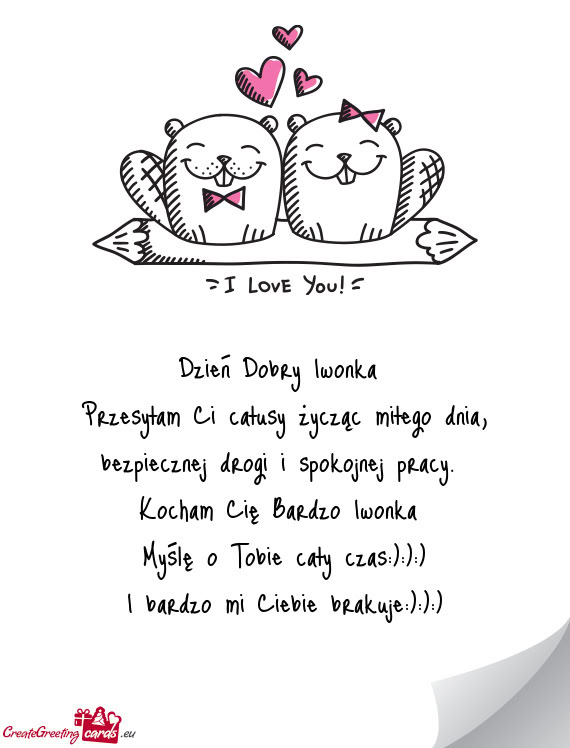 I LOVE YOU!
Dzień Dobry Iwonka
Przesyłam Ci całusy życząc miłego dnia,
bezpiecznej drogi i spokojnej pracy.
Kocham Cię Bardzo Iwonka
Myślę o Tobie cały czas:):):)
I bardzo mi Ciebie brakuje:):):)
CreateGreetingcards.eu